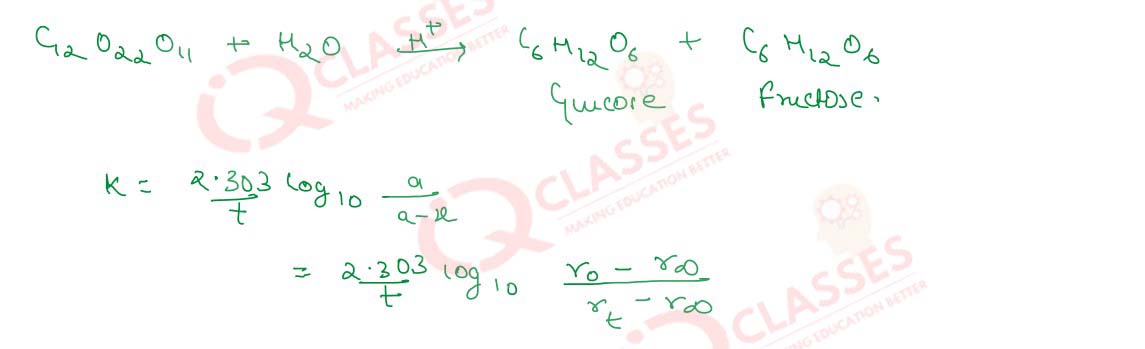 C₁₂ O₂₂ O₁₁ + H₂O H⁺→ C₆ H₁₂ O₆ + C₆ H₁₂ O₆
Glucose Fructose.
K = 2.303/t log₁₀ a/a-x
= 2.303/t log₁₀ r₀ - r∞/rₜ - r∞
IQ CLASSES
MAKING EDUCATION BETTER
IQ CLASSES
MAKING EDUCATION BETTER
IQ CLASSES
MAKING EDUCATION BETTER